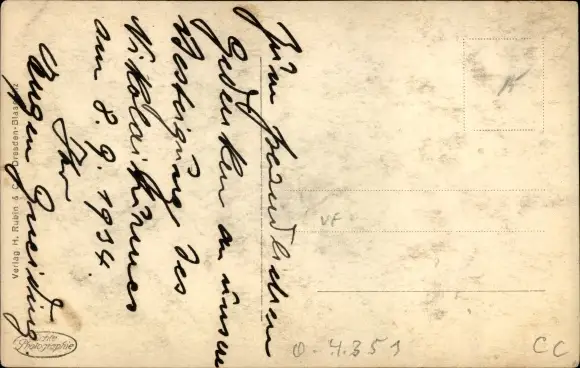 Zum freundlichen
Gedenken an unsere
Besteigung des
Nikolaiturmes
am 8.9.1934.
Ihr
Eugen
Verlag H. Rubin & Co. Dresden-Blasewitz
Echte
Photographie
VF
0-4.351
CC